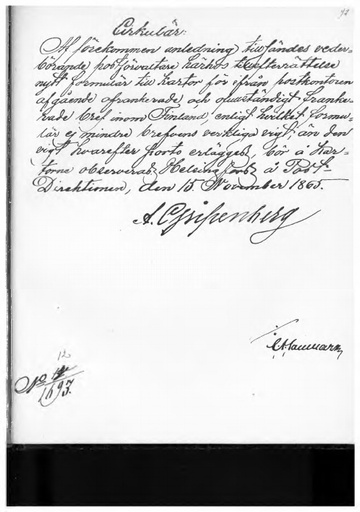 Cirkulär.
Af förekommen anledning tillsändes veder-
börande postförvaltare härhos till efterrättelse
nytt formulär till kartor för ifrån postkontoren
afgående ofrankerade och ofullständigt franke-
rade bref inom Finland, enligt hvilket formu-
lär ej mindre brefvens verkliga vigt, än den
vigt hvarefter porto erlägges, bör å kar-
torne observeras. Helsingfors, å Post-
Direktionen, den 15 November 1865.
A. Gripenberg
No 12
1693.